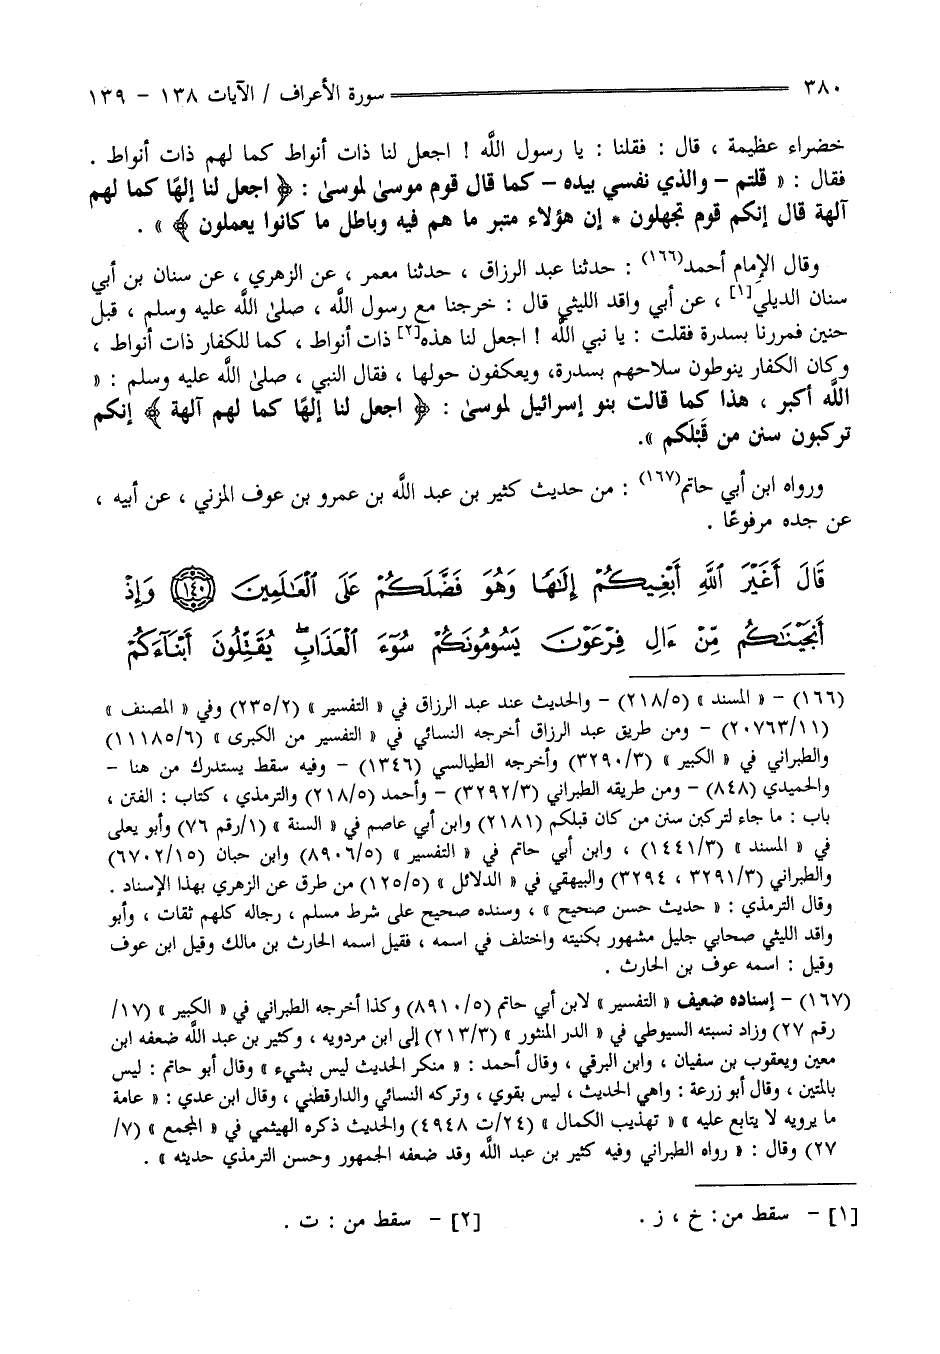 ٣٨٠ سورة الأعراف / الآيات ١٣٨ – ١٣٩
خضراء عظيمة ، قال : فقلنا : يا رسول اللَّه ! اجعل لنا ذات أنواط كما لهم ذات أنواط .
فقال : « قلتم – والذي نفسي بيده – كما قال قوم موسىٰ لموسىٰ : ﴿ اجعل لنا إلهًا كما لهم
آلهة قال إنكم قوم تجهلون * إن هؤلاء متبر ما هم فيه وباطل ما كانوا يعملون ﴾ » .
وقال الإمام أحمد(١٦٦) : حدثنا عبد الرزاق ، حدثنا معمر ، عن الزهري ، عن سنان بن أبي
سنان الديلي[١] ، عن أبي واقد الليثي قال : خرجنا مع رسول اللَّه ، صلىٰ اللَّه عليه وسلم ، قبل
حنين فمررنا بسدرة فقلت : يا نبي اللَّه ! اجعل لنا هذه[٢] ذات أنواط ، كما للكفار ذات أنواط ،
وكان الكفار ينوطون سلاحهم بسدرة، ويعكفون حولها ، فقال النبي ، صلىٰ اللَّه عليه وسلم : «
اللَّه أكبر ، هذا كما قالت بنو إسرائيل لموسىٰ : ﴿ اجعل لنا إلهًا كما لهم آلهة ﴾ إنكم
تركبون سنن من قَبْلَكم ».
ورواه ابن أبي حاتم(١٦٧) : من حديث كثير بن عبد اللَّه بن عمرو بن عوف المزني ، عن أبيه ،
عن جده مرفوعًا .
قَالَ أَغَيْرَ اللَّهِ أَبْغِيكُمْ إِلَٰهًا وَهُوَ فَضَّلَكُمْ عَلَى الْعَٰلَمِينَ ١٤٠ وَإِذْ
أَنجَيْنَٰكُم مِّنْ ءَالِ فِرْعَوْنَ يَسُومُونَكُمْ سُوٓءَ الْعَذَابِ يُقَتِّلُونَ أَبْنَآءَكُمْ
(١٦٦) – « المسند » (٢١٨/٥) – والحديث عند عبد الرزاق في « التفسير » (٢٣٥/٢) وفي « المصنف »
(٢٠٧٦٣/١١) – ومن طريق عبد الرزاق أخرجه النسائي في « التفسير من الكبرى » (١١١٨٥/٦)
والطبراني في « الكبير » (٣٢٩٠/٣) وأخرجه الطيالسي (١٣٤٦) – وفيه سقط يستدرك من هنا –
والحميدي (٨٤٨) – ومن طريقه الطبراني (٣٢٩٢/٣) – وأحمد (٢١٨/٥) والترمذي ، كتاب : الفتن ،
باب : ما جاء لتركبن سنن من كان قبلكم (٢١٨١) وابن أبي عاصم في « السنة » (١/رقم ٧٦) وأبو يعلى
في « المسند » (١٤٤١/٣) ، وابن أبي حاتم في « التفسير » (٨٩٠٦/٥) وابن حبان (٦٧٠٢/١٥)
والطبراني (٣٢٩١/٣ ، ٣٢٩٤) والبيهقي في « الدلائل » (١٢٥/٥) من طرق عن الزهري بهذا الإسناد .
وقال الترمذي : « حديث حسن صحيح » ، وسنده صحيح على شرط مسلم ، رجاله كلهم ثقات ، وأبو
واقد الليثي صحابي جليل مشهور بكنيته واختلف في اسمه ، فقيل اسمه الحارث بن مالك وقيل ابن عوف
وقيل : اسمه عوف بن الحارث .
(١٦٧) – إسناده ضعيف « التفسير » لابن أبي حاتم (٨٩١٠/٥) وكذا أخرجه الطبراني في « الكبير » (١٧/
رقم ٢٧) وزاد نسبته السيوطي في « الدر المنثور » (٢١٣/٣) إلى ابن مردويه ، وكثير بن عبد اللَّه ضعفه ابن
معين ويعقوب بن سفيان ، وابن البرقي ، وقال أحمد : « منكر الحديث ليس بشيء » وقال أبو حاتم : ليس
بالمتين ، وقال أبو زرعة : واهي الحديث ، ليس بقوي ، وتركه النسائي والدارقطني ، وقال ابن عدي : « عامة
ما يرويه لا يتابع عليه » « تهذيب الكمال » (٢٤/ت ٤٩٤٨) والحديث ذكره الهيثمي في « المجمع » (٧/
٢٧) وقال : « رواه الطبراني وفيه كثير بن عبد اللَّه وقد ضعفه الجمهور وحسن الترمذي حديثه » .
[١] – سقط من : خ ، ز . [٢] – سقط من : ت .